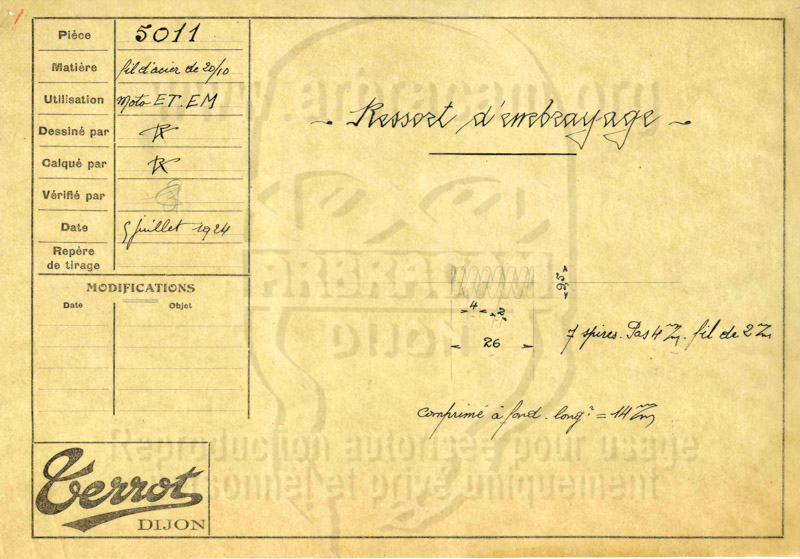 Pièce 5011
Matière fil d'acier de 20/10
Utilisation Moto ET. EM
Dessiné par R
Calqué par R
Vérifié par
Date 5 juillet 1924
Repère
de tirage
MODIFICATIONS
Date Objet
Terrot
DIJON
www.arbracam.org
- Ressort d'embrayage -
ARBRACAM
DIJON
9,5
4 2
26
7 spires. Pas 4 m/m. fil de 2 m/m
comprimé à fond. longr = 14 m/m
Reproduction autorisée pour usage
personnel et privé uniquement